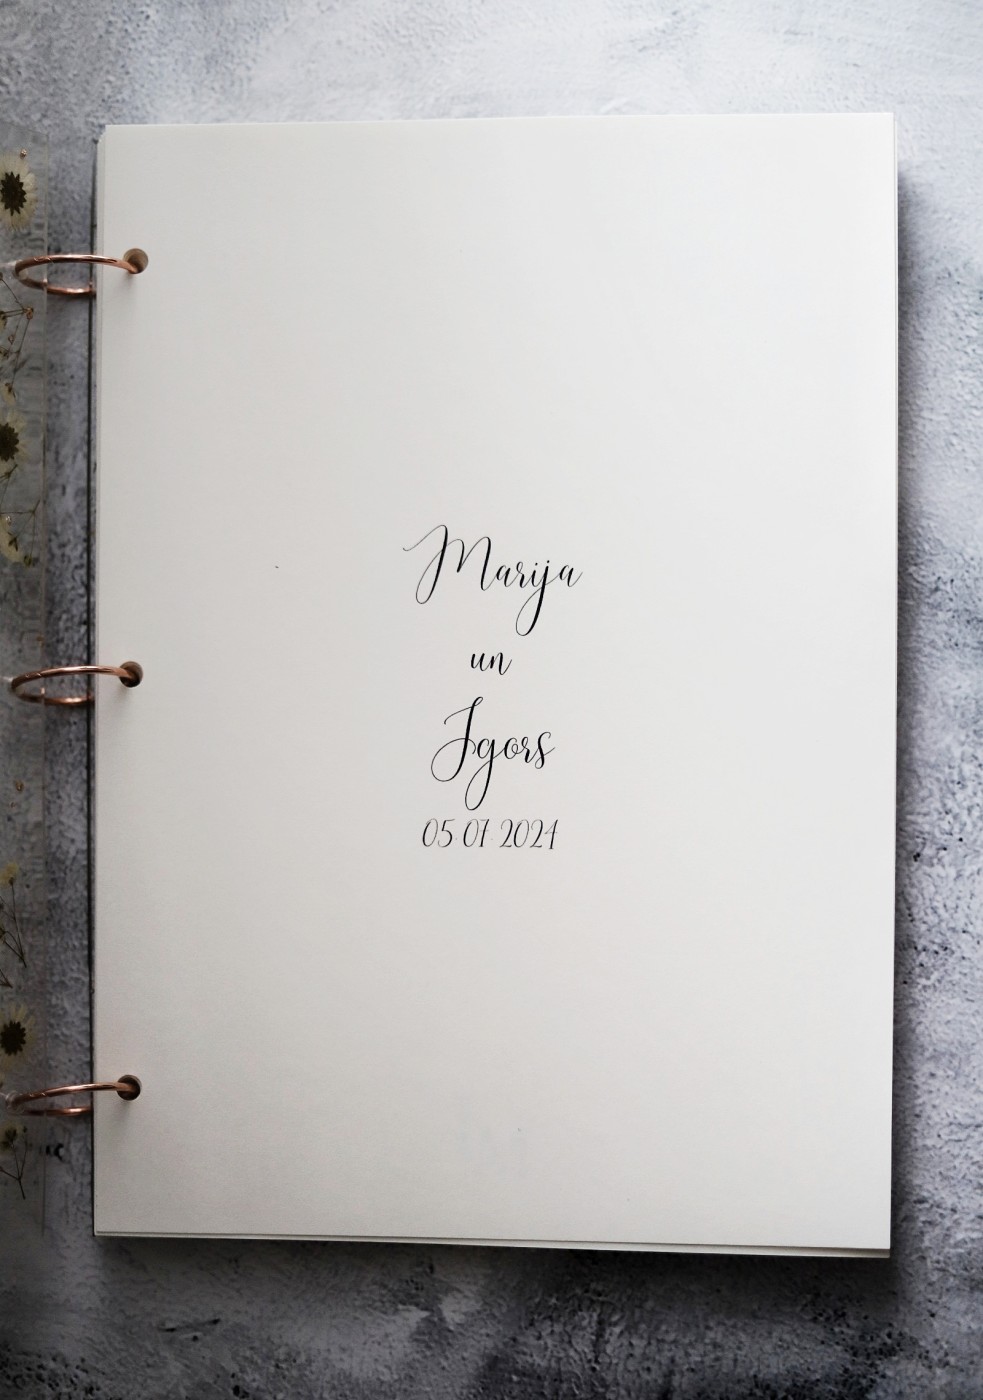 Marija
un
Igors
05.07.2024